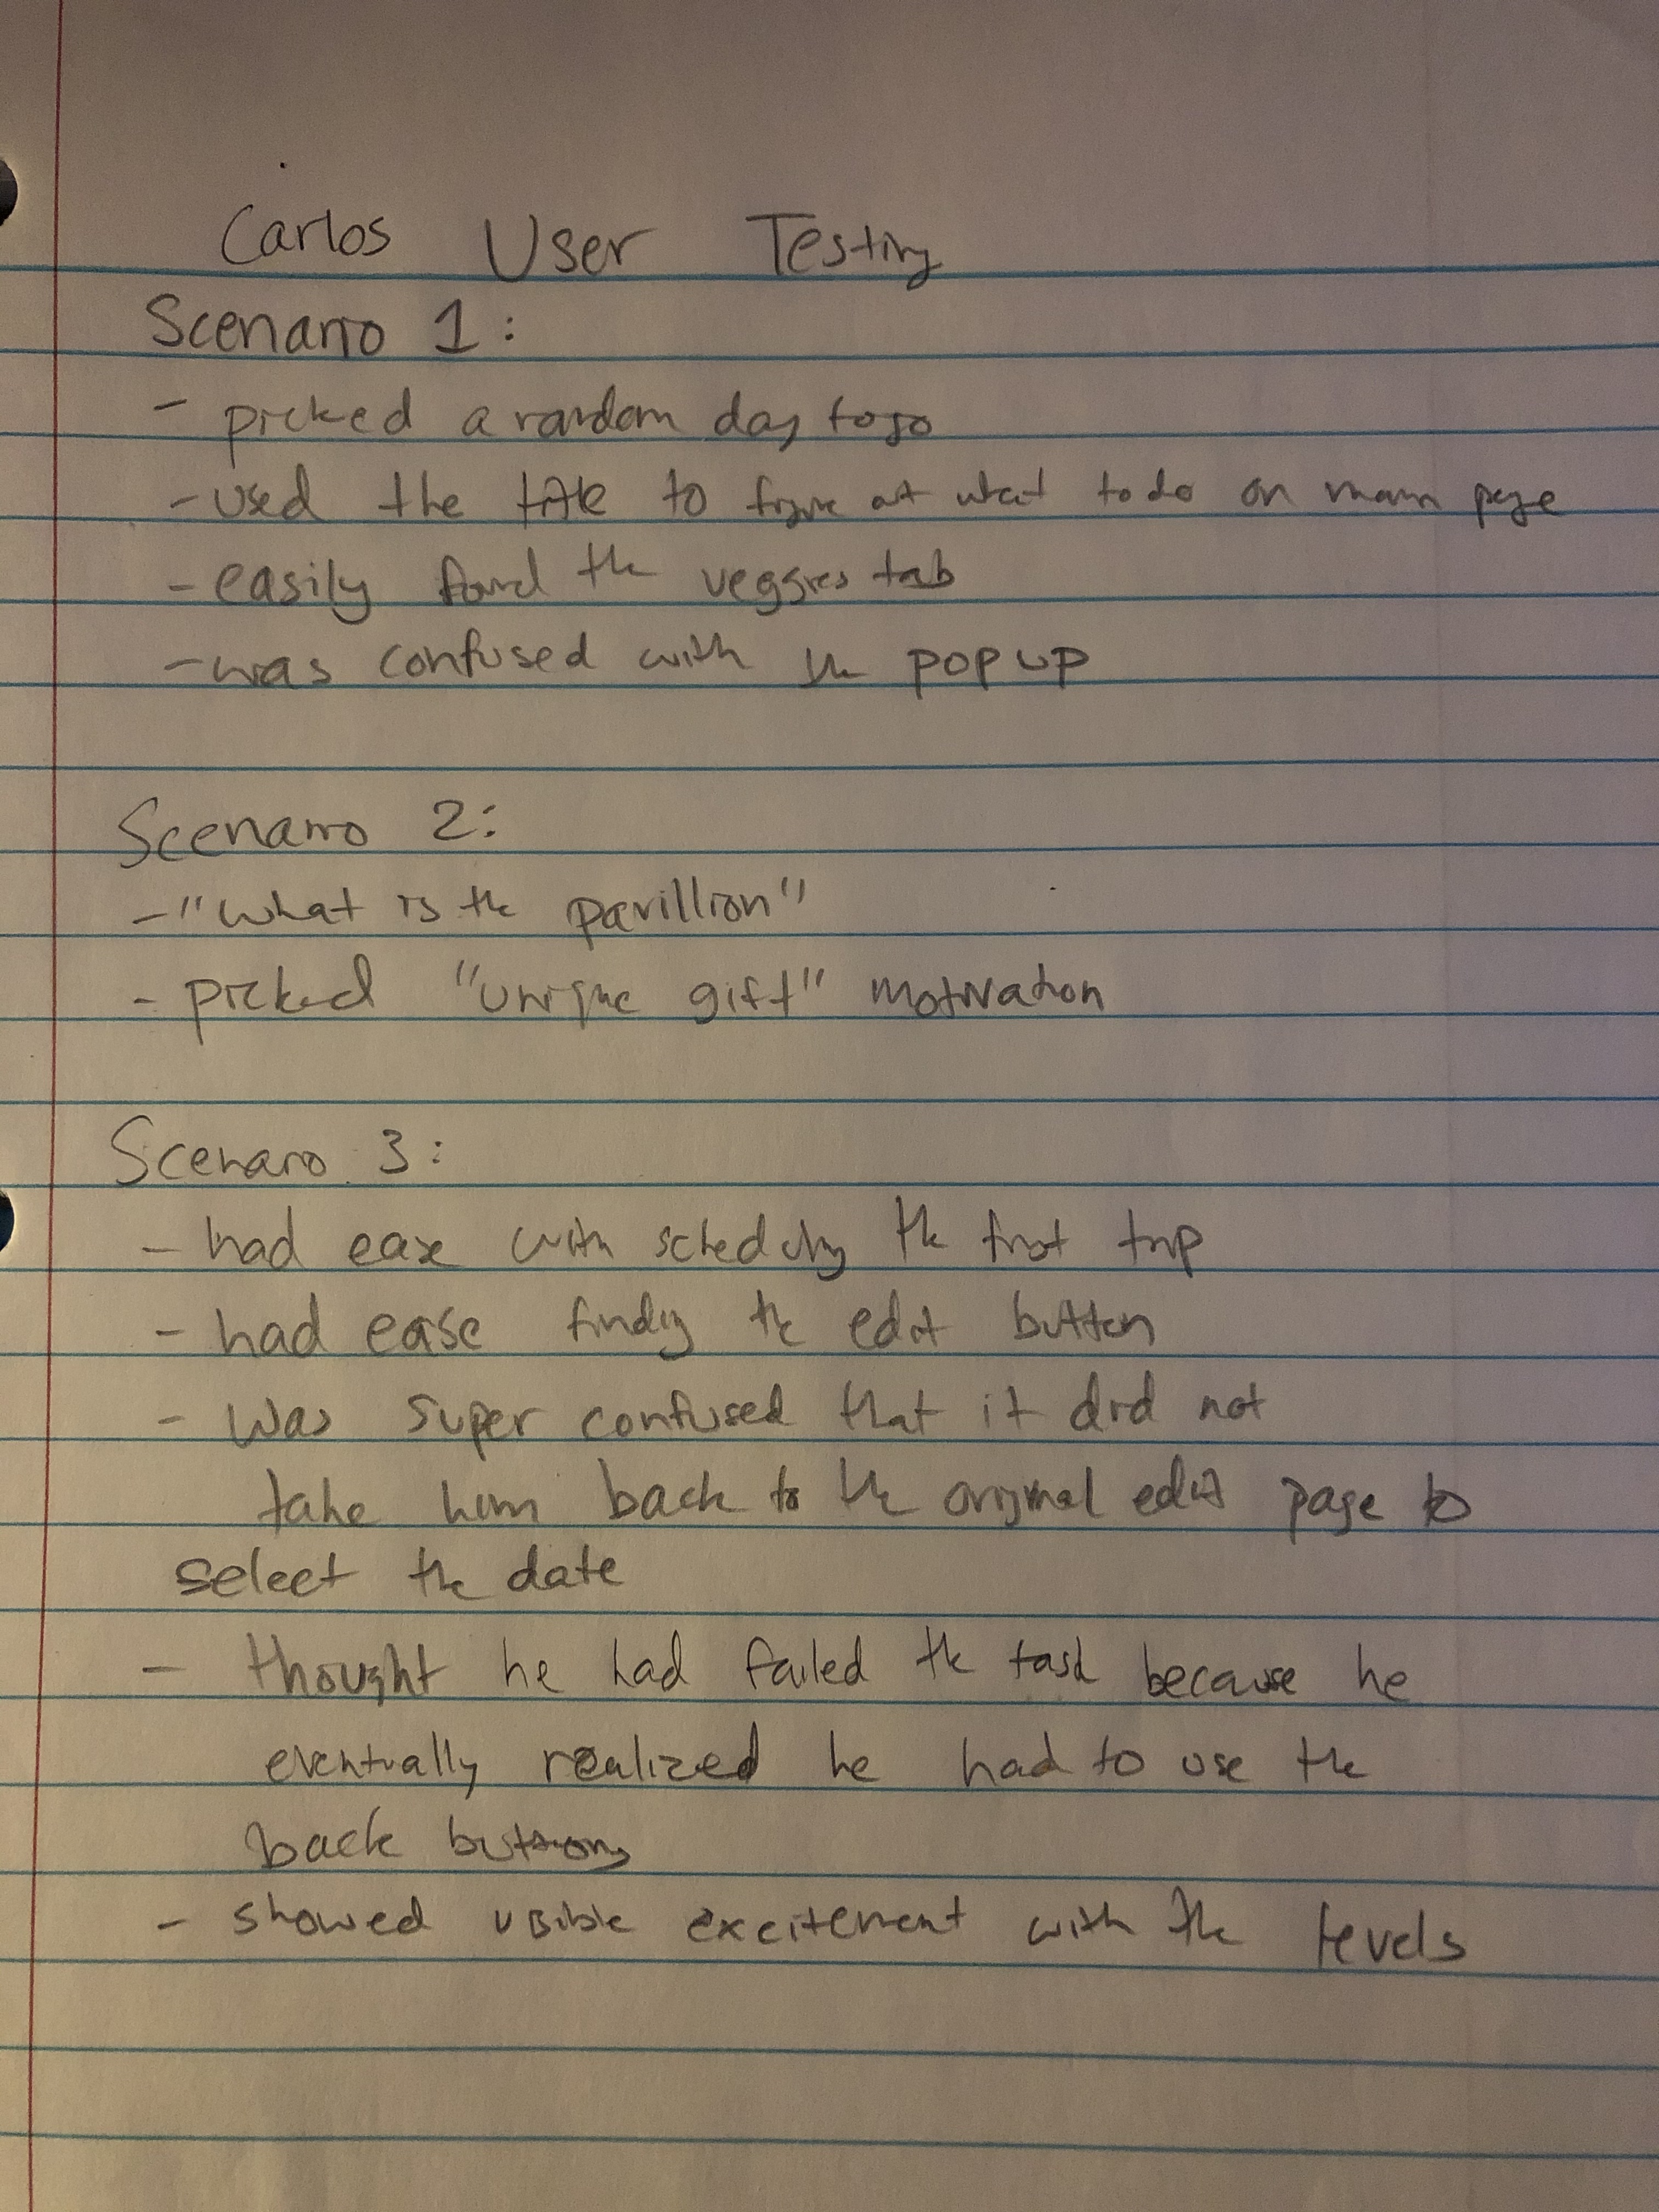 Carlos User Testing
Scenario 1:
- picked a random day to go
- used the title to figure out what to do on main page
- easily found the veggies tab
- was confused with the pop up
Scenario 2:
- "what is the pavillion"
- picked "unique gift" motivation
Scenario 3:
- had ease with scheduling the first trip
- had ease finding the edit button
- was super confused that it did not
take him back to the original edit page to
select the date
- thought he had failed the task because he
eventually realized he had to use the
back buttons
- showed visible excitement with the levels